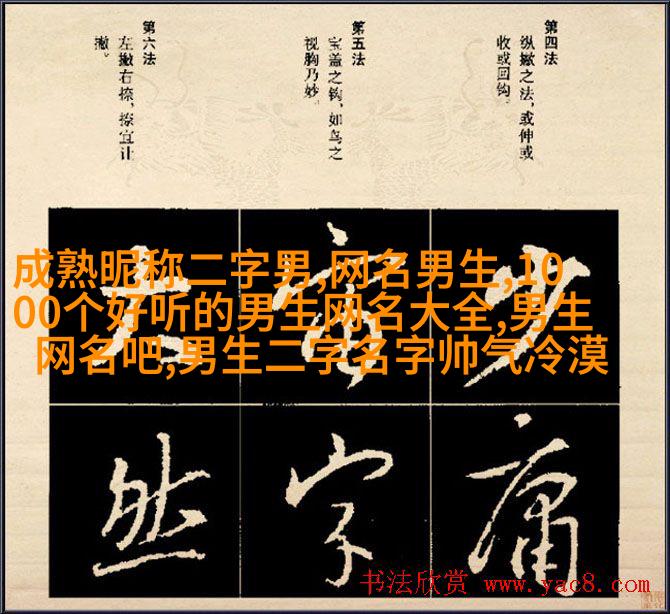 第四法
纵撇之法，或伸或
收或回钩。
第五法
宝盖之钩，如鸟之
视胸乃妙。
第六法
左撇右捺，捺宜让
撇。
成熟昵称二字男,网名男生,10
00个好听的男生网名大全,男生
网名吧,男生二字名字帅气冷漠
少
庸
字
然
书法欣赏 www.yac8.com